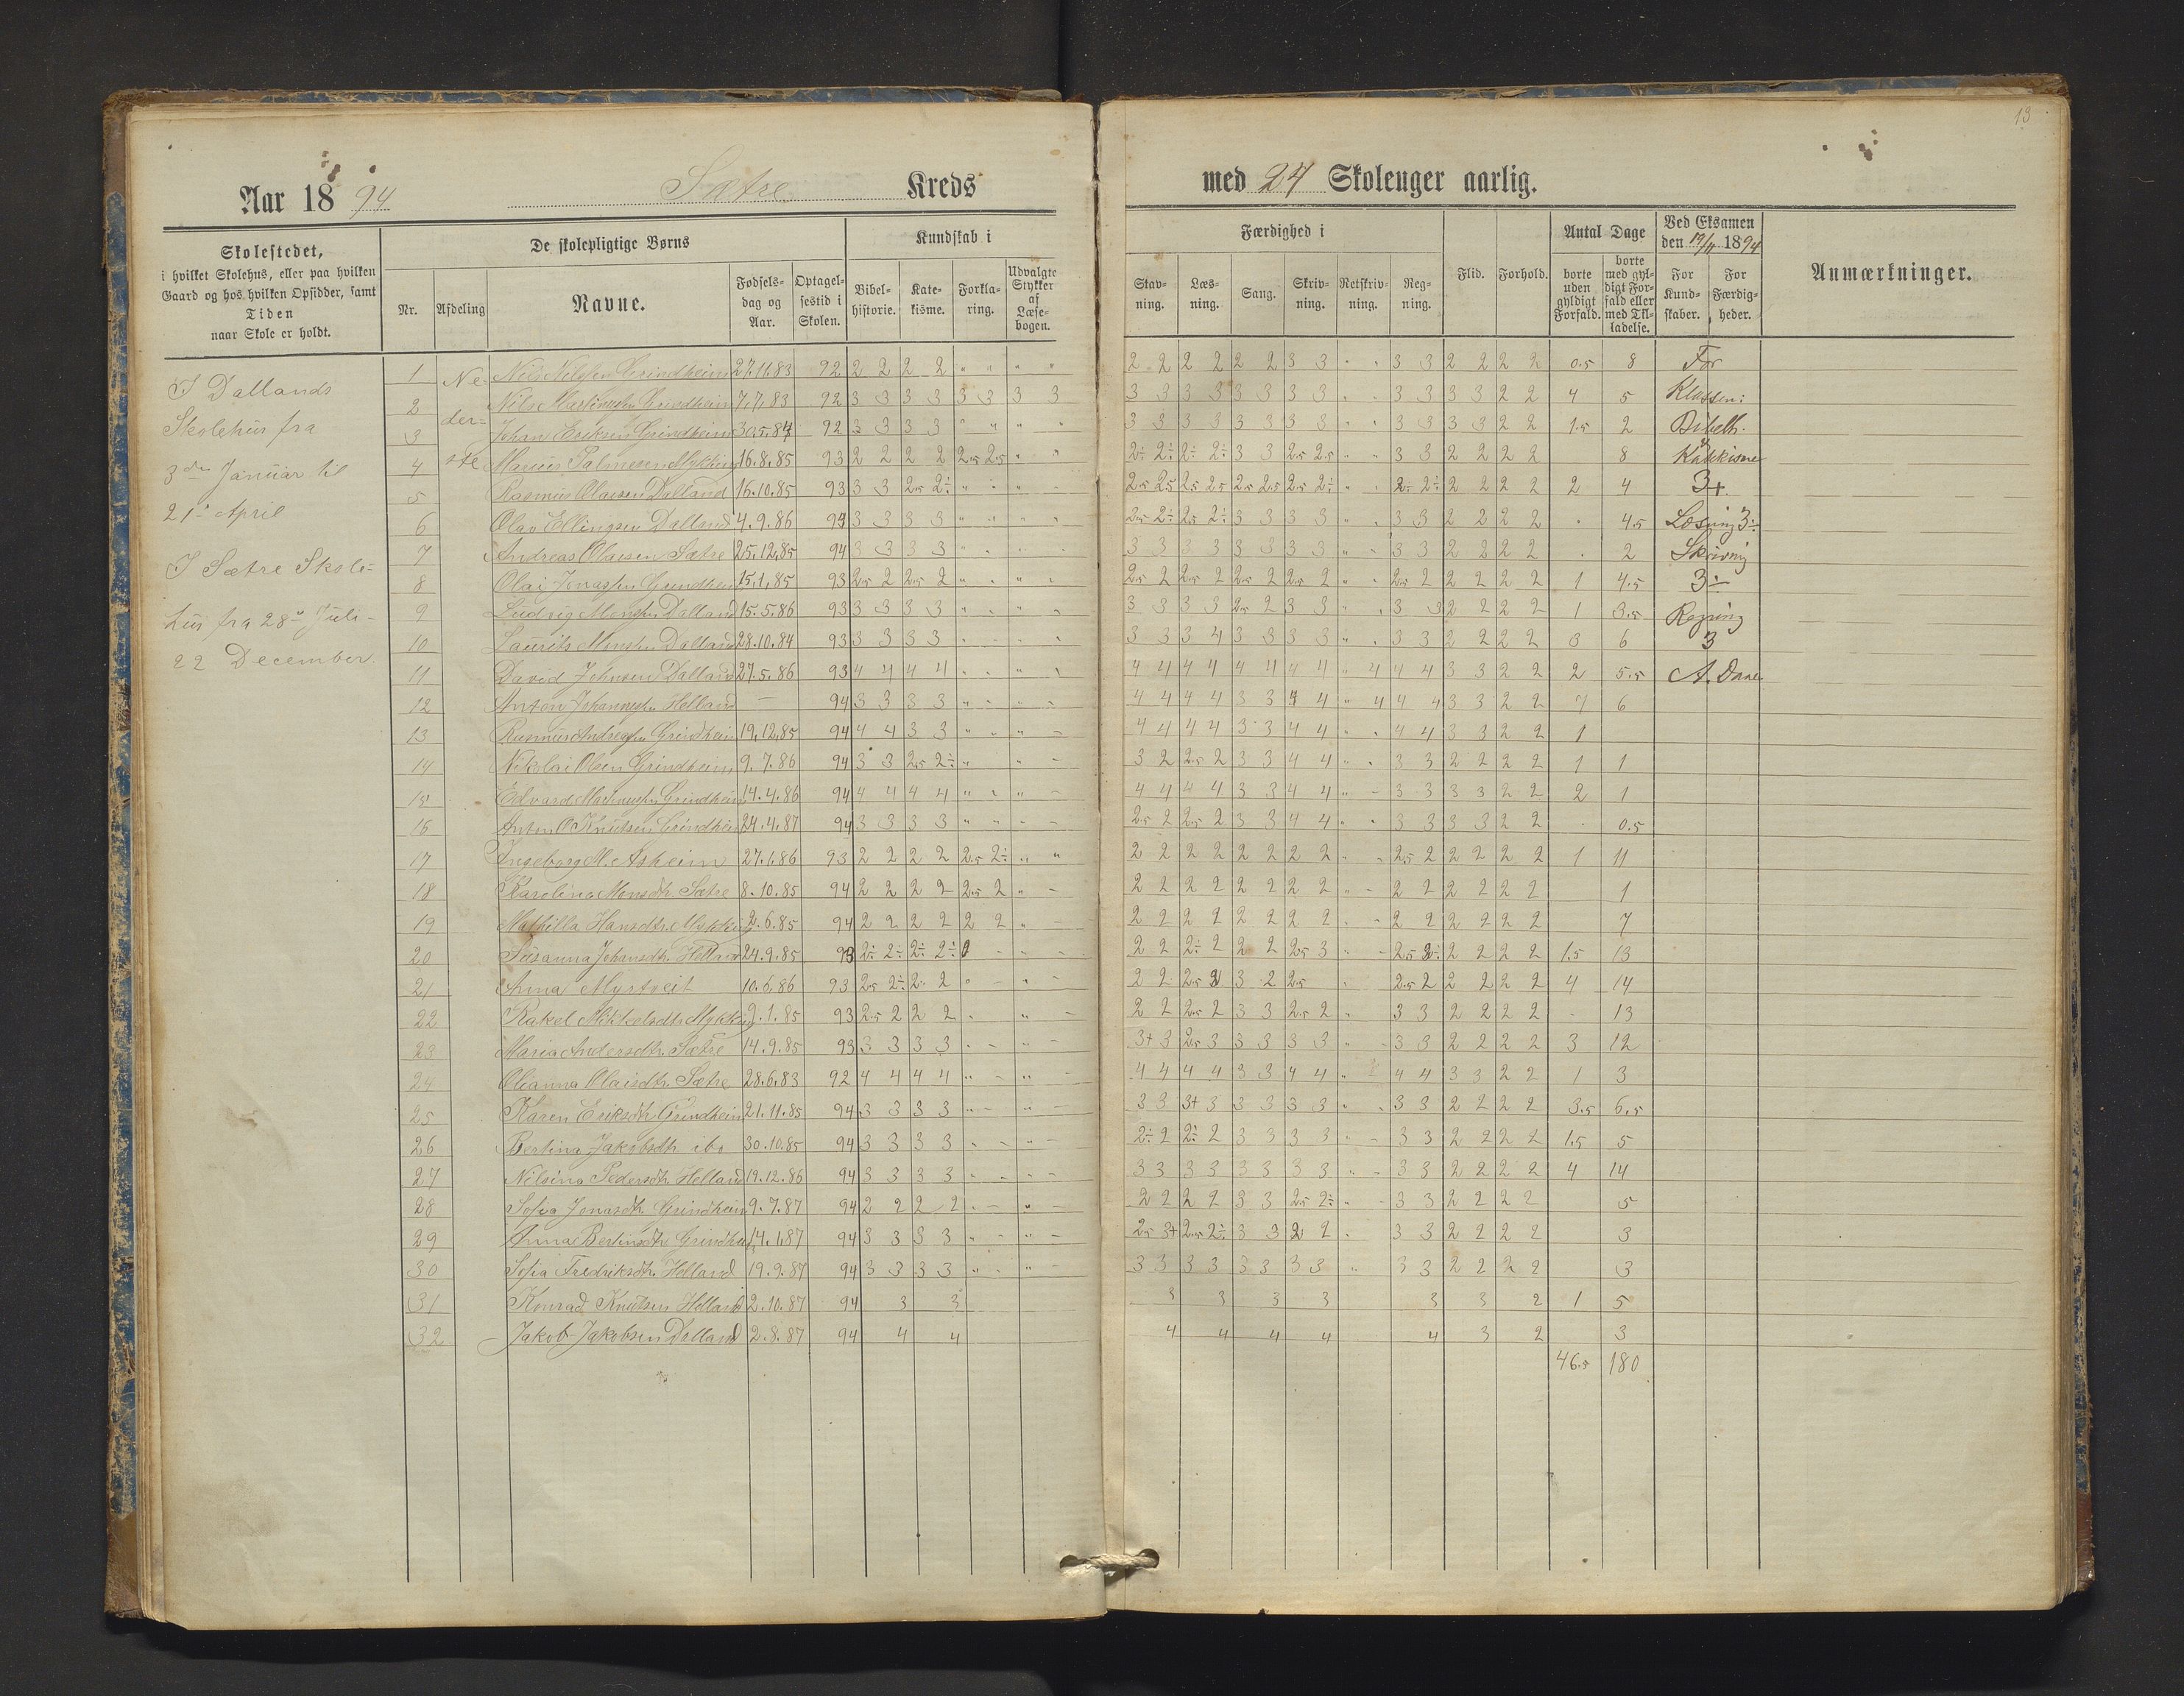 13
Aar 1894 Sætre Kreds med 24 Skoleuger aarlig.
Skolestedet, i hvilket Skolehus, eller paa hvilken Gaard og hos hvilken Opsidder, samt Tiden naar Skole er holdt.
De skolepligtige Børns
Nr. Afdeling Navne. Fødselsdag og Aar. Optagelsestid i Skolen.
Kundskab i
Bibelhistorie. Katekisme. Forklaring. Udvalgte Stykker af Læsebogen.
Færdighed i
Stavning. Læsning. Sang. Skrivning. Retskrivning. Regning.
Flid. Forhold.
Antal Dage
borte uden gyldigt Forfald. borte med gyldigt Forfald eller med Tilladelse.
Ved Eksamen den 19/11 1894
For Kundskaber. For Færdigheder.
Anmærkninger.
I Dallands
Skolehus fra
3die Januar til
21de April
I Sætre Skole=
hus fra 28de Juli -
22 December
Ne-
der=
ste
1 Nils Nilssen Grindheim 27.11.83 92 2 2 2 2 " " " " 2 2 2 2 2 2 3 3 " " 3 3 2 2 2 2 0.5 8
2 Nils Martinussen Grindheim 7.7.83 92 3 3 3 3 3 3 3 3 3 3 3 3 3 3 3 3 " " 3 3 3 3 2 2 4 5
3 Johan Eriksen Grindheim 30.5.84 92 3 3 3 3 " " " " 3 3 3 3 3 3 3 3 " " 3 3 3 3 2 2 1.5 2
4 Marius Salmesen Mykking 16.8.85 93 2 2 2 2 2.5 2.5 " " 2÷ 2÷ 2÷ 2÷ 3 3 2.5 2.5 " " 3 3 2 2 2 2 8
5 Rasmus Olaisen Dalland 16.10.85 93 3 3 2.5 2÷ " " " - 2.5 2.5 2.5 2.5 2.5 2.5 2.5 2÷ " " 2÷ 2÷ 2 2 2 2 2 4
6 Olav Ellingsen Dalland 4.9.86 94 3 3 3 3 " " " " 2.5 2÷ 2.5 2÷ 3 3 3 3 " " 3 3 2 2 2 2 . 4.5
7 Andreas Olaisen Sætre 25.12.85 94 3 3 3 3 " " " " 3 3 3 3 3 3 3 3 " " 3 3 2 2 2 2 . 2
8 Olai Jonassen Grindheim 15.1.85 93 2.5 2 2.5 2 " " " " 2.5 2 2.5 2 2.5 2 2.5 2 " " 2.5 2 2 2 2 2 1 4.5
9 Ludvig Monssen Dalland 15.5.86 93 3 3 3 3 " " " " 3 3 3 3 2.5 2 3 3 " " 3 3 2 2 2 2 1 3.5
10 Laurits Monssen Dalland 28.10.84 93 3 3 3 3 " " " " 3 3 3 4 3 3 3 3 " " 3 3 2 2 2 2 3 6
11 David Johnsen Dalland 27.5.86 93 4 4 4 4 " " " " 4 4 4 4 4 4 4 4 " 4 4 4 3 3 2 2 2 5.5
12 Anton Johannessen Helland - 94 3 3 3 3 " " " " 4 4 4 4 3 3 4 4 " 4 4 4 3 3 2 2 7 6
13 Rasmus Andreassen Grindheim 19.12.85 94 4 4 3 3 " " " - 4 4 4 4 3 3 4 4 " " 4 4 3 3 2 2 1
14 Nikolai Olsen Grindheim 9.7.86 94 3 3 2.5 2÷ " " - 3 2 2.5 2 3 3 4 4 " " 3 3 2 2 2 2 1 1
15 Edvard Martinussen Grindheim 14.4.86 94 4 4 4 4 " " " - 4 4 4 4 3 3 4 4 " - 3 3 3 3 2 2 2 1
16 Anton O Knutsen Grindheim 24.4.87 94 3 3 3 3 " " - - 2.5 2 2.5 2 3 3 4 4 " " 3 3 3 3 2 2 . 0.5
17 Ingeborg M. Asheim 27.1.86 93 2 2 2 2 2.5 2÷ " " 2 2 2 2 2 2 2 2 " " 2.5 2 2 2 2 2 1 11
18 Karolina Monsdtr. Sætre 8.10.85 94 2 2 2 2 2.5 2 " - 2 2 2 2 2 2 2 2 " - 2 2 2 2 2 2 1
19 Mathilla Hansdtr. Mykking 2.6.85 94 2 2 2 2 2 2 " - 2 2 2 2 2 2 2 2 " " 2 2 2 2 2 2 7
20 Susanna Johansdtr. Helland 24.9.85 93 2÷ 2÷ 2÷ 2÷ 0 - - - 2 2 2÷ 2 2 2 2.5 3 " - 2.5 2÷ 2 2 2 2 1.5 13
21 Anna Myrtveit 10.6.86 93 2.5 2÷ 2÷ 2 " - " - 2 2 2.5 2 3 2 2.5 " 2.5 2 2 2 2 2 4 14
22 Rakel Mikkelsdtr. Mykking 9.1.85 93 2.5 2 2 2 " " - 2 2 2.5 2 3 3 2.5 2 " 3 3 2 2 2 2 . 13
23 Maria Andersdtr. Sætre 14.9.85 93 3 3 3 3 " - " - 3+ 3 2.5 3 3 3 3 3 " - 3 3 2 2 2 2 3 12
24 Olianna Olaisdtr. Sætre 28.6.83 92 4 4 4 4 " - " - 4 4 4 4 3 3 4 4 " 4 4 3 3 2 2 1 3
25 Karen Eriksdtr. Grindheim 21.11.85 94 3 3 3 3 " - " - 3 3 3+ 3 3 3 3 3 " " 3 3 2 2 2 2 3.5 6.5
26 Bertina Jakobsdtr. ibd 30.10.85 94 3 3 3 3 - - " - 2÷ 2 2÷ 2 3 3 3 3 " - 3 3 2 2 2 2 1.5 5
27 Nilsina Pedersdtr. Helland 19.12.86 94 3 3 3 3 - - - - 3 3 3 3 3 3 3 3 " - 3 3 2 2 2 2 4 14
28 Sofia Jonasdtr. Grindheim 9.7.87 94 2 2 2 2 - - " - 2 2 2 2 3 3 2.5 2÷ " - 3 3 2 2 2 2 5
29 Anna Bertinsdtr. Grindheim 14.1.87 94 3 3 3 3 " - " - 2.5 3+ 2.5 2÷ 3 3 2 2 " 3 3 2 2 2 2 3
30 Sofia Fredriksdtr. Helland 19.9.87 94 3 3 3 3 " - " - 3 3 3 3 3 3 3 3 " 3 3 2 2 2 2 3
31 Konrad Knutsen Helland 2.10.87 94 3 3 3 3 3 3 3 3 2 1 5
32 Jakob Jakobsen Dalland 2.8.87 94 4 4 4 4 4 4 4 3 2 3
46.5 180
For
Klassen:
Bibelh.
Katekisme
3+
Læsning 3÷
Skrivning
3÷
Regning
3